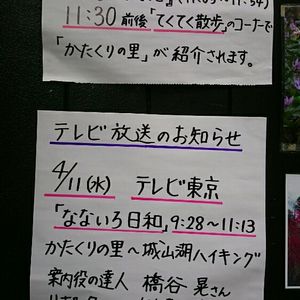 11:30前後「てくてく散歩」のコーナーで
「かたくりの里」が紹介されます。
テレビ放送のお知らせ
4/11(水) テレビ東京
「なないろ日和」9:28~11:13
かたくりの里~城山湖ハイキング
案内役の達人 橋谷 晃さん